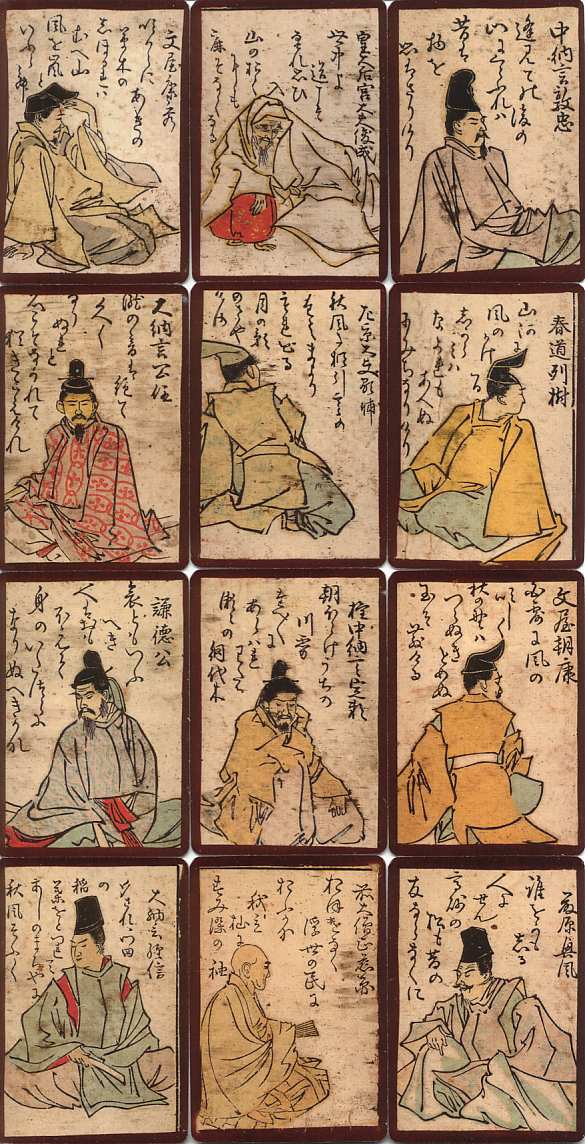 中納言敦忠
逢見ての後の
心にくらふれハ
昔は
物を
おもはさりけり
皇太后宮大夫俊成
世中よ
道こそ
なけれ思ひ
入
山のおくにも
鹿そなくなる
文屋康秀
吹からに
あきの
草木の
しほるれは
むへ山
風を嵐と
いふらむ
春道列樹
山河に
風のかけたる
しからみハ
なかれも
あへぬ
もみちなりけり
左京大夫顕輔
秋風にたなひく雲の
たえまより
もれ出る
月の影の
さやけさ
大納言公任
瀧の音は絶て
久しく
なりぬれと
名こそなかれて
猶きこえけれ
文屋朝康
白露に風の
吹しく
秋の野ハ
つらぬきとめぬ
玉そちりける
権中納言定頼
朝ほらけうちの
川霧
たえ〱に
あらはれわたる
瀬々の網代木
謙徳公
哀ともいふ
へき
人は
おもほえて
身のいたつらに
なりぬへきかな
藤原興風
誰をかも
しる
人に
せん
高砂の
松も昔の
友ならなくに
前大僧正慈円
おほけなく
浮世の民に
おほふかな
我立
杣に
すみ染の袖
大納言経信
夕されハ門田
の
稲
葉をとつれて
あしのまろやに
秋風そふく